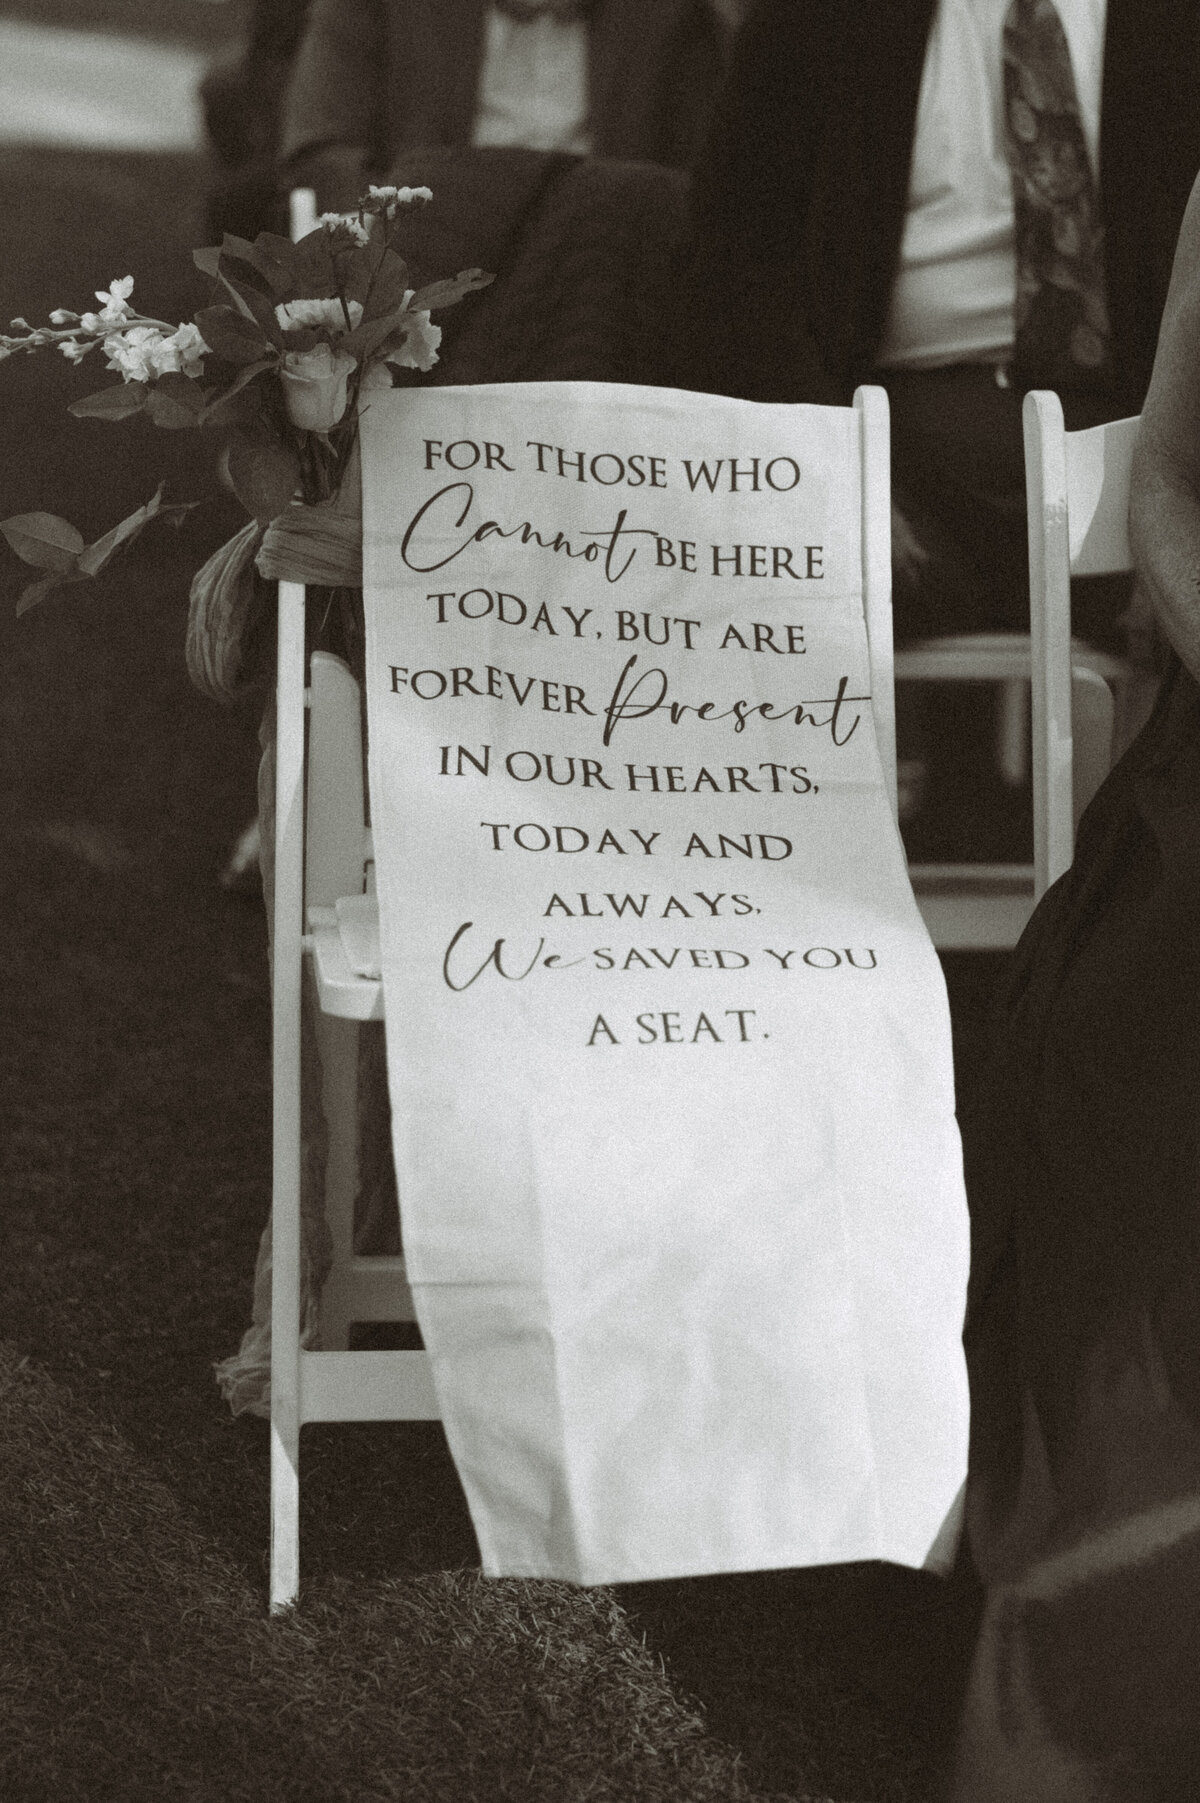 FOR THOSE WHO
Cannot BE HERE
TODAY, BUT ARE
FOREVER Present
IN OUR HEARTS,
TODAY AND
ALWAYS.
We SAVED YOU
A SEAT.